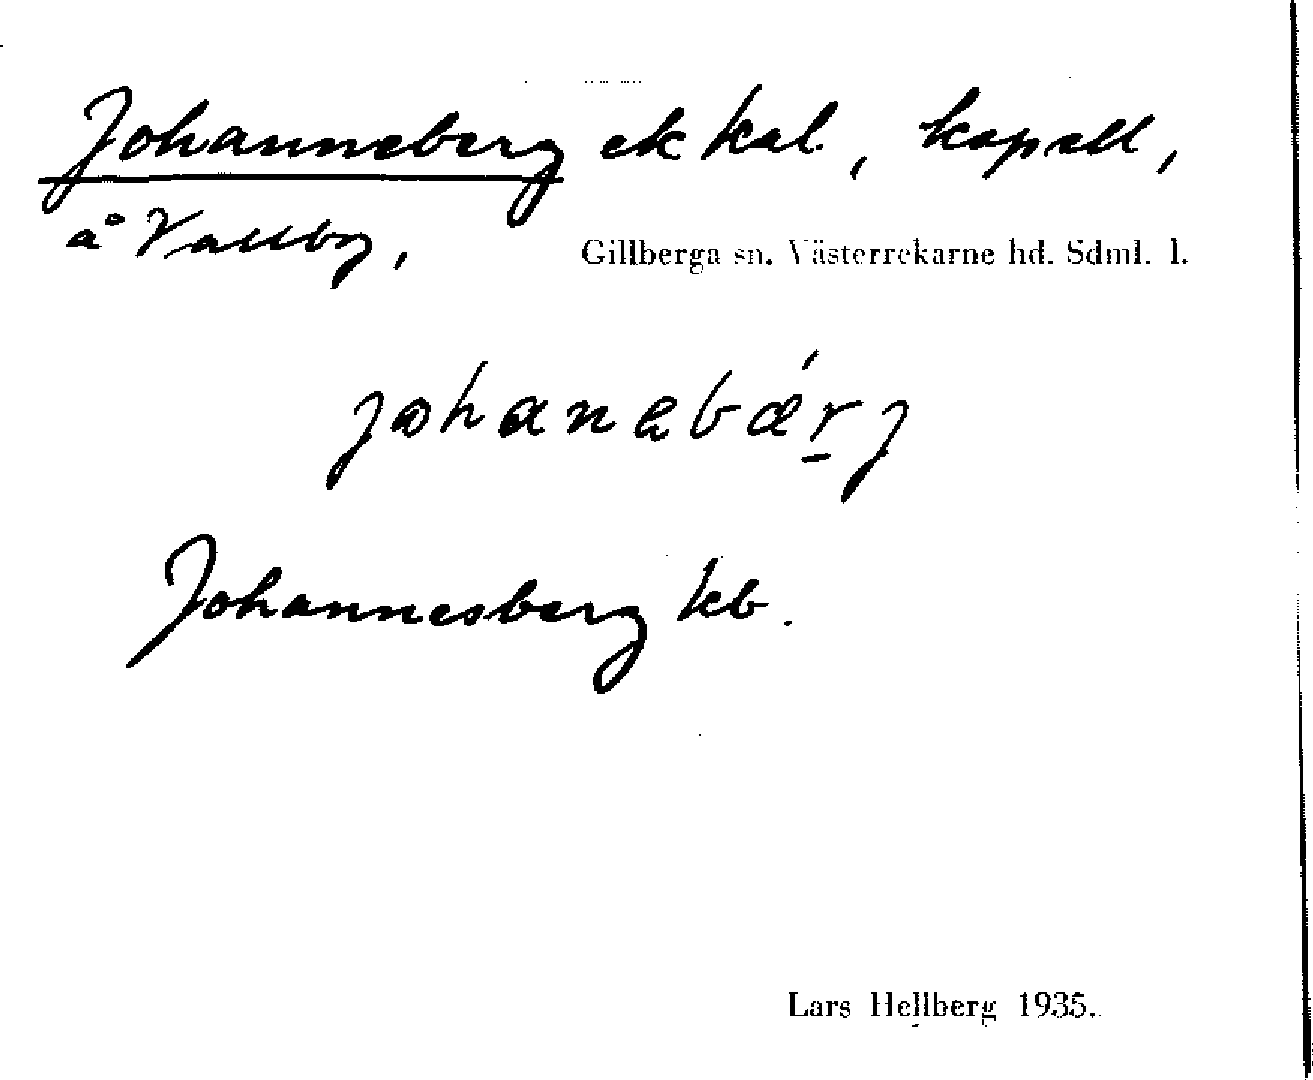 Johanneberg ek kal., kapell,
å Vallby, Gillberga sn. Västerrekarne hd. Sdml. l.
johanebǽr̠j
Johannesberg kb.
Lars Hellberg 1935.